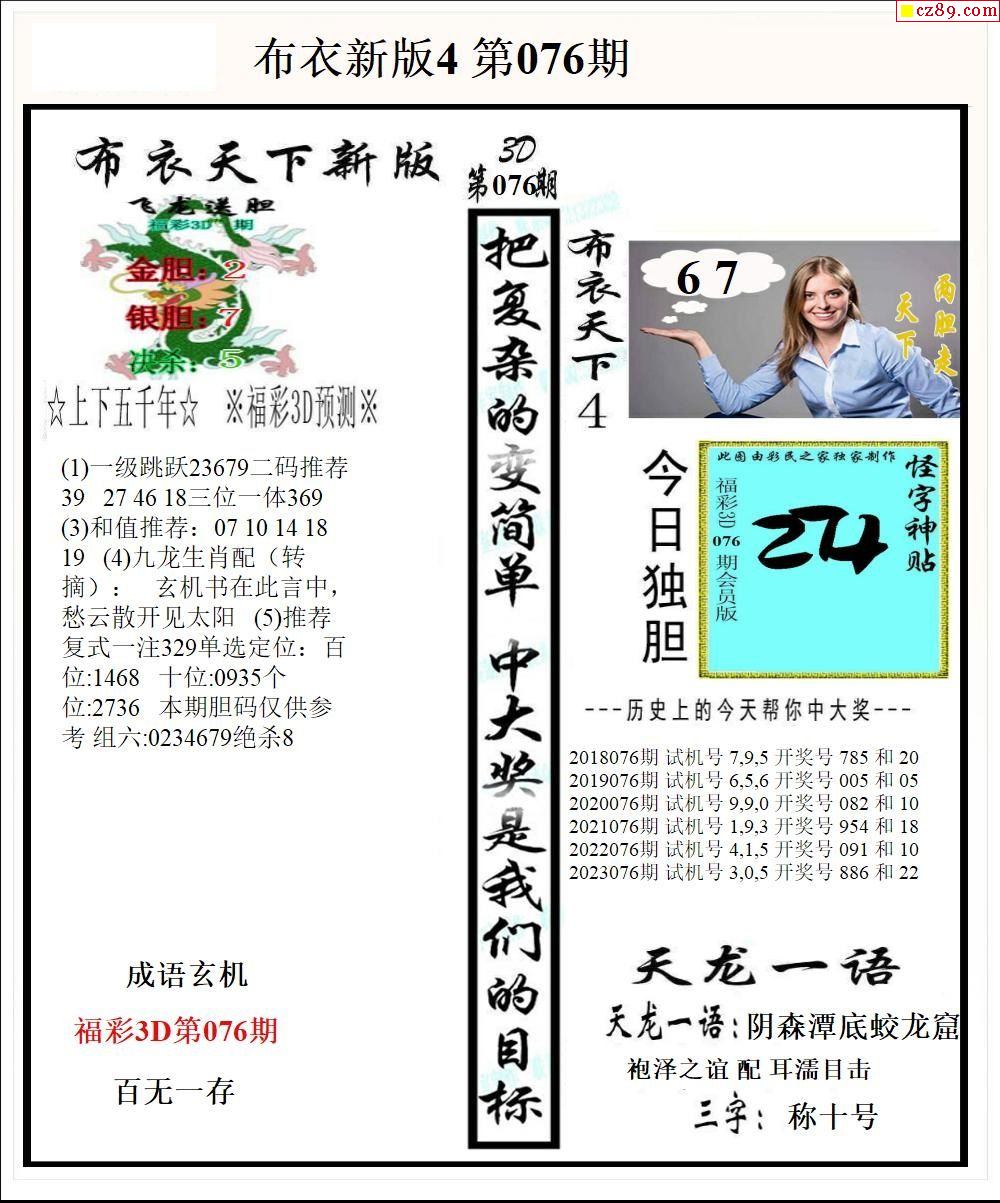 cz89.com
布衣新版4 第076期
布衣天下新版
飞龙送胆
福彩3D 期
金胆：2
银胆：7
决杀：5
☆上下五千年☆ ※福彩3D预测※
(1)一级跳跃23679二码推荐
39 27 46 18三位一体369
(3)和值推荐：07 10 14 18
19 (4)九龙生肖配（转
摘）： 玄机书在此言中，
愁云散开见太阳 (5)推荐
复式一注329单选定位：百
位:1468 十位:0935个
位:2736 本期胆码仅供参
考 组六:0234679绝杀8
成语玄机
福彩3D第076期
百无一存
3D
第076期
把复杂的变简单 中大奖是我们的目标
布衣天下4
6 7
两胆走
天下
今日独胆
此图由彩民之家独家制作
怪字神贴
福彩3D 076 期会员版
24
---历史上的今天帮你中大奖---
2018076期 试机号 7,9,5 开奖号 785 和 20
2019076期 试机号 6,5,6 开奖号 005 和 05
2020076期 试机号 9,9,0 开奖号 082 和 10
2021076期 试机号 1,9,3 开奖号 954 和 18
2022076期 试机号 4,1,5 开奖号 091 和 10
2023076期 试机号 3,0,5 开奖号 886 和 22
天龙一语
天龙一语:阴森潭底蛟龙窟
袍泽之谊 配 耳濡目击
三字：称十号